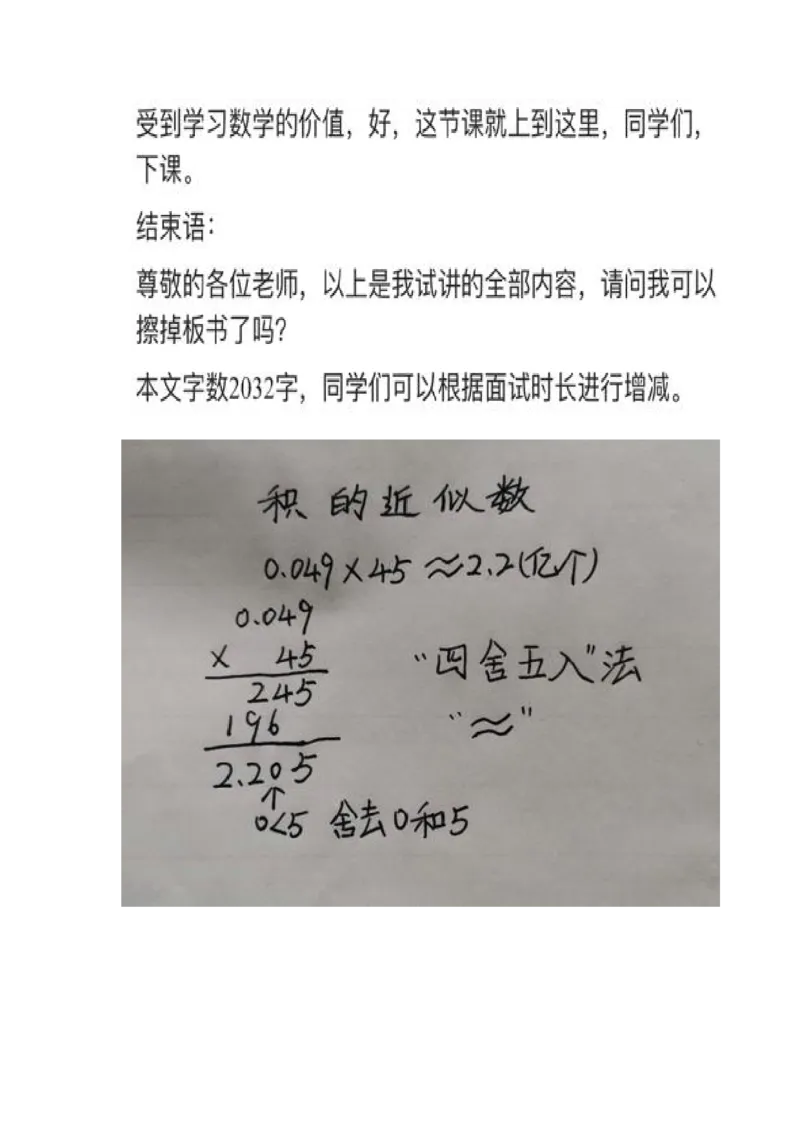 受到学习数学的价值，好，这节课就上到这里，同学们，
下课。
结束语：
尊敬的各位老师，以上是我试讲的全部内容，请问我可以
擦掉板书了吗？
本文字数2032字，同学们可以根据面试时长进行增减。
积的近似数
0.049×45≈2.2(亿个)
0.049
× 45
245
196
2.205
↑
0<5 舍去0和5
“四舍五入”法
“≈”